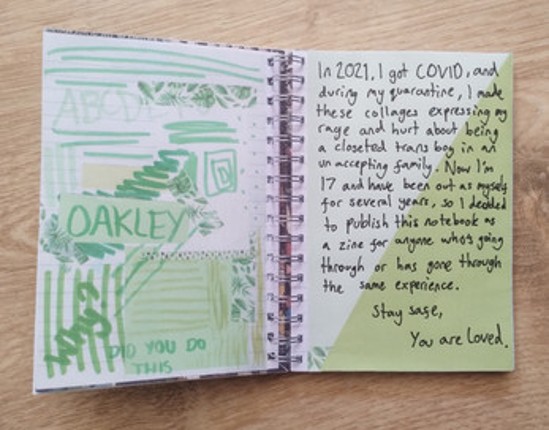 ABCD
D
OAKLEY
DID YOU DO
THIS
In 2021, I got COVID, and
during my quarantine, I made
these collages expressing my
rage and hurt about being
a closeted trans boy in an
un accepting family. Now I'm
17 and have been out as myself
for several years, so I decided
to publish this notebook as
a zine for anyone who's going
through or has gone through
the same experience.
Stay safe,
You are Loved.